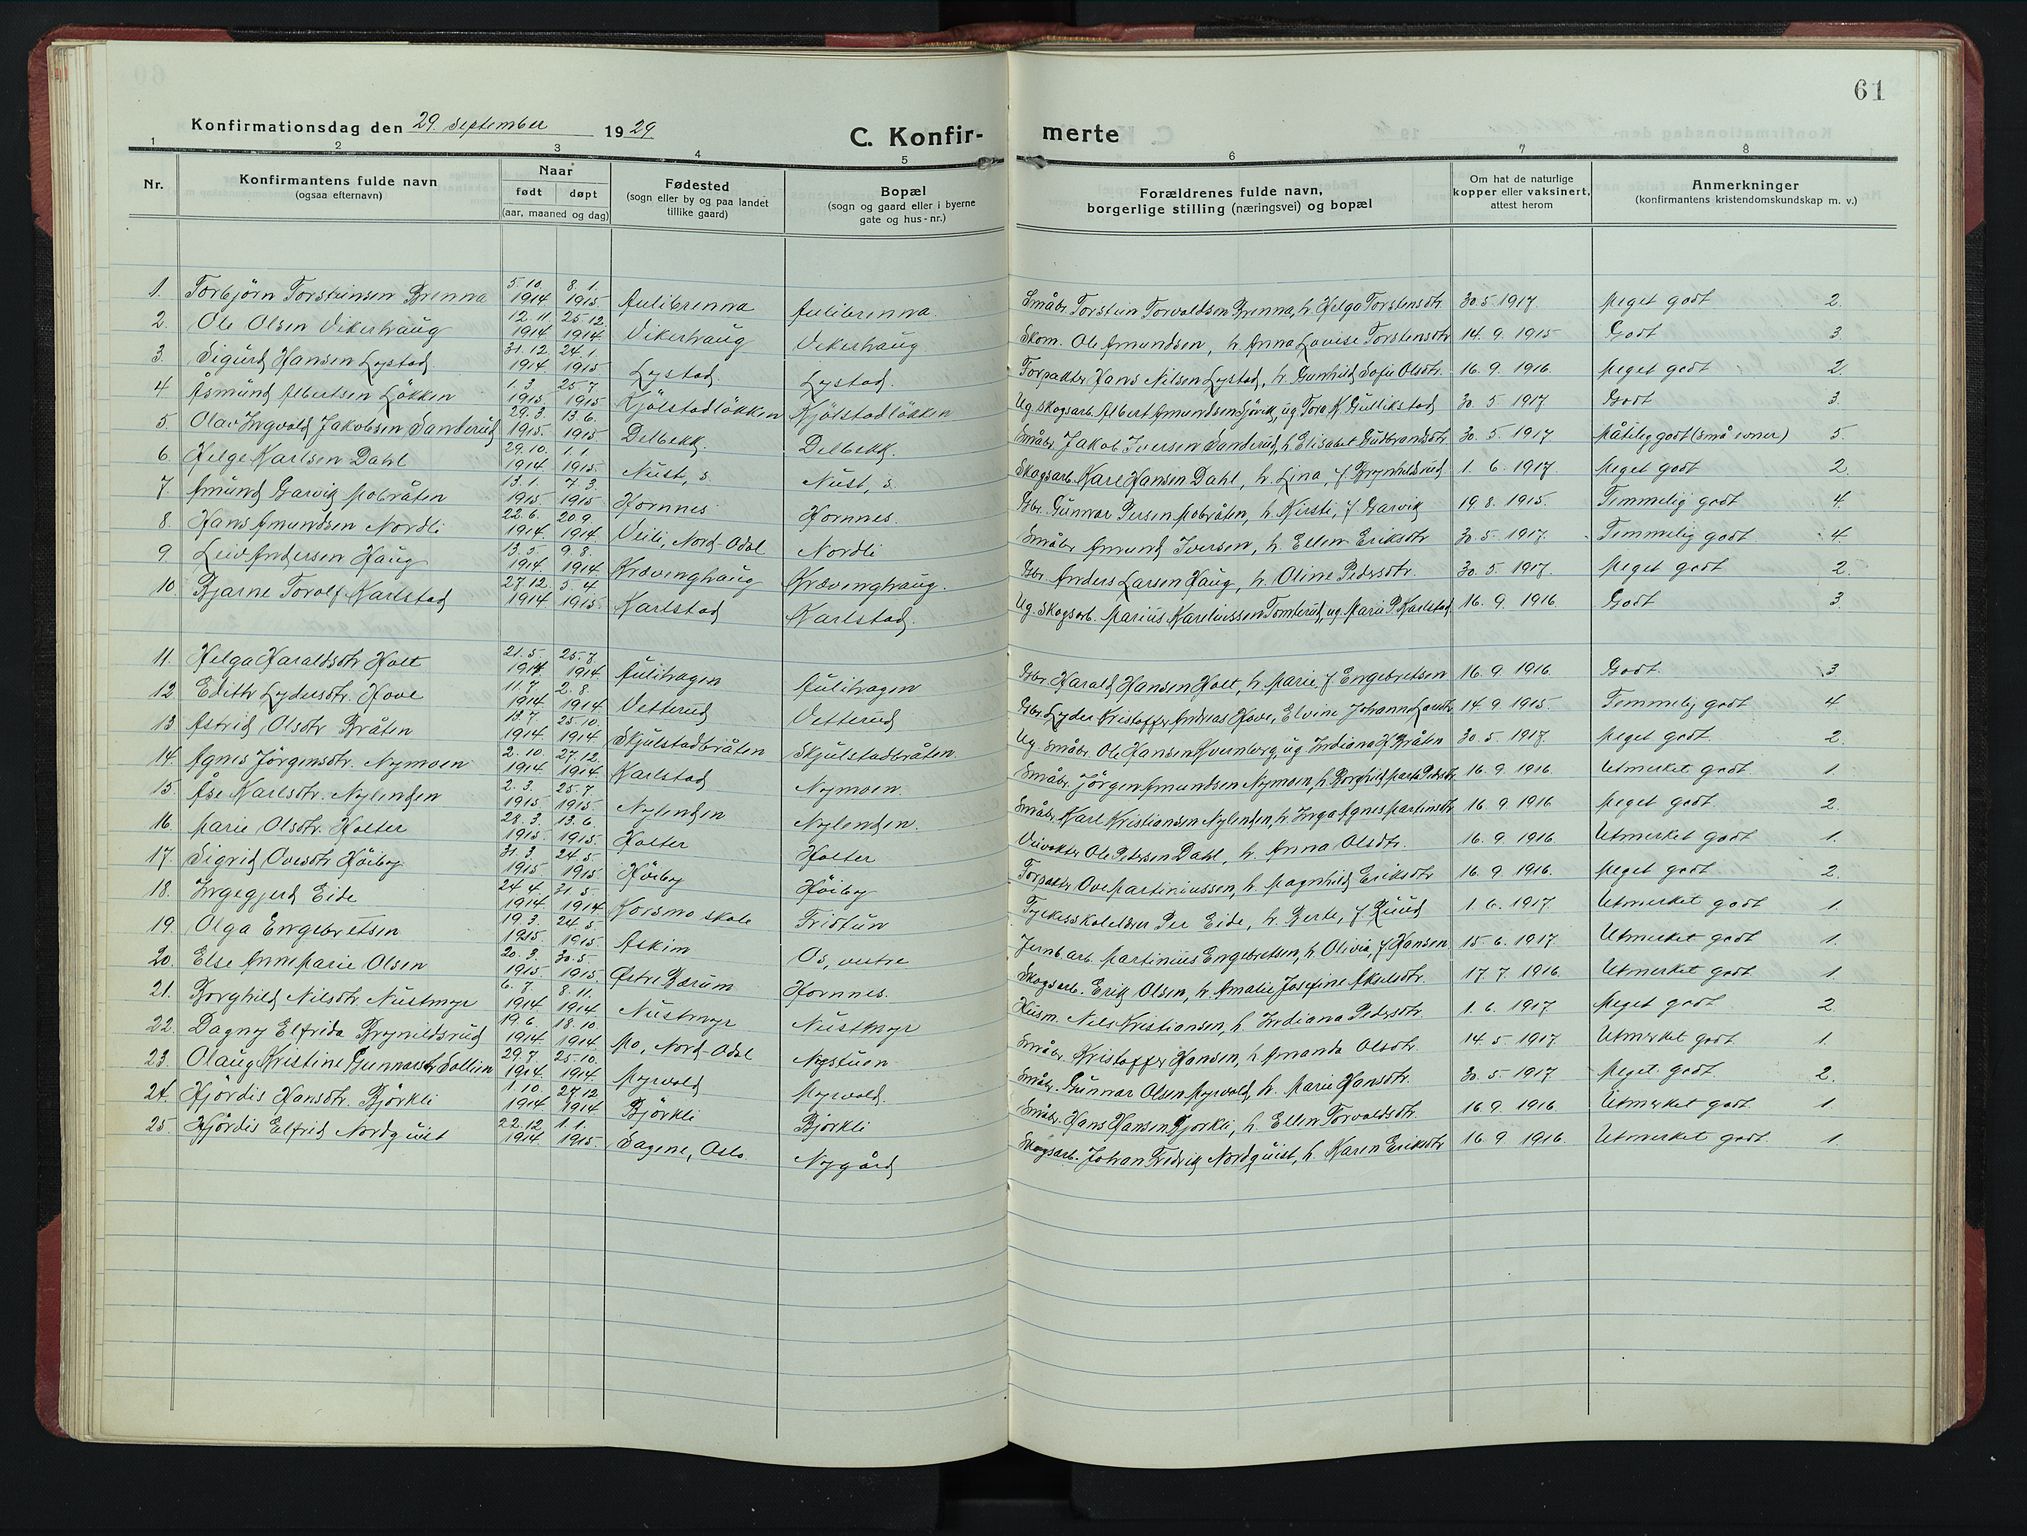 61
Konfirmationsdag den 29. september 1929
C. Konfir- merte
1 2 3 4 5 6 7 8
Nr. Konfirmantens fulde navn (ogsaa efternavn) Naar født døpt (aar, maaned og dag) Fødested (sogn eller by og paa landet tillike gaard) Bopæl (sogn og gaard eller i byerne gate og hus-nr.) Forældrenes fulde navn, borgerlige stilling (næringsvei) og bopæl Om hat de naturlige kopper eller vaksinert, attest herom Anmerkninger (konfirmantens kristendomskundskap m. v.)
1. Torbjørn Torsteinsen Brenna 5.10. 1914 8.1. 1915 Aulibrenna Aulibrenna. Småbr. Torstein Torvaldsen Brenna, h. Helga Torstensdtr. 30.5.1917. Meget godt 2.
2. Ole Olsen Vikerhaug 12.11. 1914 25.12. 1914 Vikerhaug Vikerhaug Skom. Ole Amundsen, h. Anna Lovise Torstensdtr. 14.9.1915 Godt 3.
3. Sigurd Hansen Lystad. 31.12. 1914 24.1. 1915 Lystad. Lystad. Forpakter Hans Nilsen Lystad, h. Gunhild Sofie Olsdtr. 16.9.1916. Meget godt 2.
4. Åsmund Albertsen Løkken 1.3. 1915 25.7. 1915 Kjølstadløkken Kjølstadløkken Ug. skogsarb. Albert Amundsen Sjøvik, ug. Tora K. Gullikstad 30.5.1917 Godt 3.
5. Olav Ingvald Jakobsen Sanderud 29.3. 1915. 13.6. 1915 Delbekk. Delbekk. Småbr. Jakob Iversen Sanderud, h. Elisabet Gudbrandsdtr. 30.5.1917 Måtelig godt (små evner) 5.
6. Helge Karlsen Dahl 29.10. 1914 1.1. 1915 Nust, s. Nust, s. Skogsarb. Karl Hansen Dahl, h. Lina, f. Brynhildsrud 1.6.1917. Meget godt 2.
7. Amund Garvik Mobråten 13.1. 1915 7.3. 1915 Hornnes Hornnes. Gbr. Gunnar Persen Mobråten, h. Kirsti, f. Garvik 19.8.1915. Temmelig godt 4.
8. Hans Amundsen Nordli 22.6. 1914 20.9. 1914 Veili, Nord-Odal Nordli Småbr. Amund Iversen, h. Ellen Eriksdtr. 30.5.1917. Temmelig godt 4.
9. Leiv Andersen Haug 13.5. 1914 9.8. 1914 Krævinghaug Krævinghaug. Gbr. Anders Larsen Haug, h. Oline Pedersdtr. 30.5.1917. Meget godt 2.
10. Bjarne Torolf Karlstad 27.12. 1914 5.4. 1915. Karlstad Karlstad. Ug. skogsarb. Marius Kareliussen Tomterud, ug. Marie P. Karlstad 16.9.1916. Godt 3.
11. Helga Haraldsdtr. Holt 21.5. 1914 25.7. 1914 Aulihagen Aulihagen Gbr. Harald Hansen Holt, h. Marie, f. Engebretsen 16.9.1916. Godt. 3
12 Edith Lydersdtr. Hove 11.7. 1914 2.8. 1914 Vetterud Vetterud Gbr. Lyder Kristoffer Andreas Hove, Elvine Johanne Larsdtr. 14.9.1915 Temmelig godt 4
13 Astrid Olsdtr. Bråten 13.7. 1914 25.10. 1914 Skjulstadbråten Skjulstadbråten. Ug. småbr. Ole Hansen Kvernberg, ug. Indiana K. Bråten 30.5.1917. Meget godt. 2.
14. Agnes Jørgensdtr. Nymoen 2.10. 1914 27.12. 1914 Karlstad Nymoen. Småbr. Jørgen Amundsen Nymoen, h. Borghild Marie Pedersdtr. 16.9.1916. Utmerket godt 1.
15 Åse Karlsdtr. Nylenden 2.3. 1915 25.7. 1915. Nylenden Nylenden. Småbr. Karl Kristiansen Nylenden, h. Inga Agnes Martinsdtr. 16.9.1916 Meget godt 2.
16. Marie Olsdtr. Holter 28.3. 1915 13.6. 1915. Holter Holter Veivokter Ole Pedersen Dahl, h. Anna Olsdtr. 16.9.1916. Utmerket godt 1.
17. Sigrid Ovesdtr. Høiby 31.3. 1915 24.5. 1915 Høiby Høiby Forpakter Ove Martiniussen, h. Magnhild Eriksdtr. 16.9.1916. Meget godt 2.
18. Ingegjerd Eide 24.4. 1914 31.5. 1914 Korsmo skole Fristun Fylkesskoleldrer Per Eide, h. Berte, f. Ruud 1.6.1917. Utmerket godt 1.
19. Olga Engebretsen 19.3. 1915. 24.5. 1915. Askim Os, vestre Jernb.arb. Martinius Engebretsen, h. Olivia, f. Hansen 15.6.1917. Utmerket godt 1.
20. Else Anne Marie Olsen 20.3. 1915 30.5. 1915. Østre Bærum Hornnes. Skogsarb. Erik Olsen, h. Amalie Josefine Akselsdtr. 17.7.1916. Utmerket godt 1
21. Borghild Nilsdtr. Nustmyr 6.7. 1914. 8.11. 1914 Nustmyr Nustmyr Husm. Nils Kristiansen, h. Indiana Pedersdtr. 1.6.1917. Meget godt 2
22. Dagny Elfrida Brynildsrud 19.6 1914 18.10 1914 Mo, Nord-Odal Nystuen Småbr. Kristoffer Hansen, h. Amanda Olsdtr. 14.5.1917. Utmerket godt 1.
23. Olaug Kristine Gunnarsdtr. Sollien 29.7. 1914. 25.10. 1914. Myrvold Myrvold. Småbr. Gunnar Olsen Myrvold, h. Marie Hansdtr. 30.5.1917 Meget godt 2.
24. Hjørdis Hansdtr. Bjørkli 1.10. 1914 27.12 1914 Bjørkli Bjørkli Småbr. Hans Hansen Bjørkli, h. Ellen Torvaldsdtr. 16.9.1916 Utmerket godt 1.
25. Hjørdis Elfrid Nordquist 22.12. 1914 1.1. 1915. Sagene, Oslo. Nygård Skogsarb. Johan Fredrik Nordquist, h. Karen Eriksdtr. 16.9.1916. Utmerket godt. 1